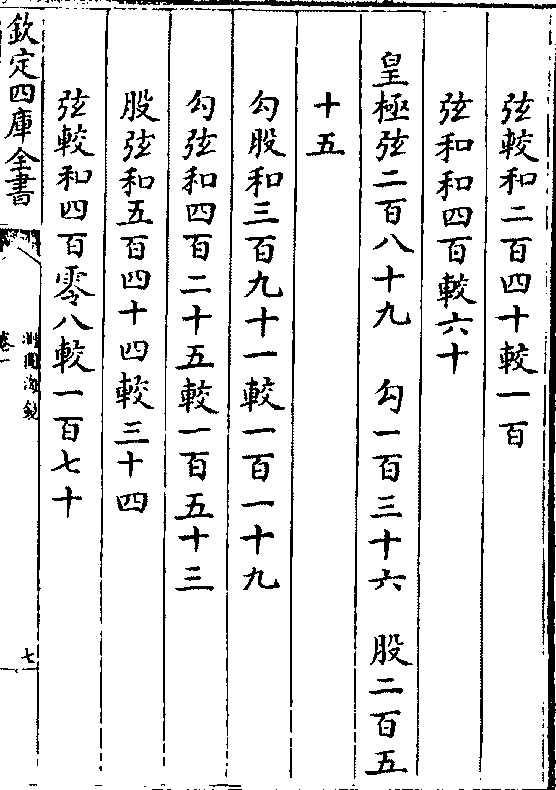 弦較和二百四十較一百
弦和和四百較六十
皇極弦二百八十九　勾一百三十六　股二百五
十五
勾股和三百九十一較一百一十九
勾弦和四百二十五較一百五十三
股弦和五百四十四較三十四
弦較和四百零八較一百七十
欽定四庫全書
測圓海鏡
卷一
七